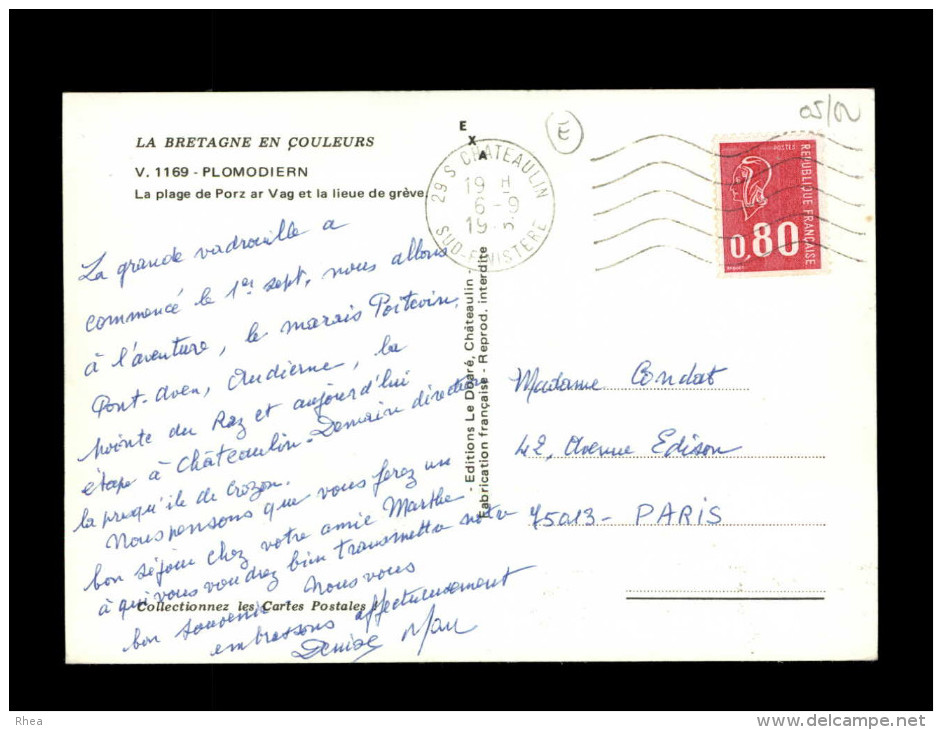 05/02
E
LA BRETAGNE EN COULEURS
V. 1169 - PLOMODIERN
La plage de Porz ar Vag et la lieue de grève.
E
X
A
29 S CHATEAULIN
19 H
6 - 9
SUD-FINISTERE
POSTES
REPUBLIQUE FRANÇAISE
0,80
La grande vadrouille a
commencé le 1er sept, nous allons
à l'aventure, le marais Poitevin,
Pont-Aven, Audierne, la
pointe du Raz et aujourd'hui
étape à Châteaulin - Demain direction
la presqu'île de Crozon.
Nous pensons que vous ferez un
bon séjour chez votre amie Marthe
à qui vous voudrez bien transmettre notre
bon souvenir Nous vous
embrassons affectueusement
Denise
Collectionnez les Cartes Postales !
- Editions Le Doaré, Châteaulin -
Fabrication française - Reprod. interdite
Madame Condat
42, Avenue Edison
75013 - PARIS
Rhea
www.delcampe.net